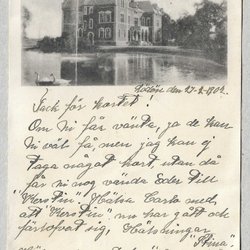 den 27-2-1902
Tack för kortet!
Om Ni får vänta, ja de kan
ni väl få, men jag kan ej
taga något kort, utan då
får ni nog vända Eder till
"Kerstin" Hälsa Carla med,
att "Kerstin" nu har gått och
förlofvat sig. Helsningar
"Stina"